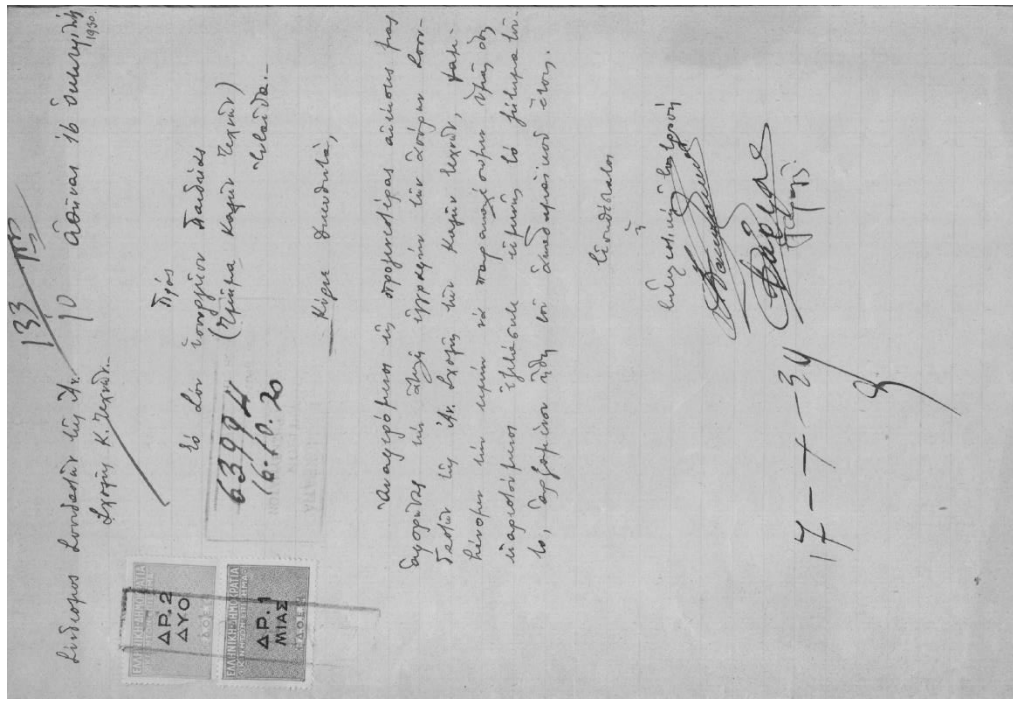 133
Σύνδεσμος Σπουδαστῶν τῆς Ἀν. 90 Ἀθῆναι 16
1930
Σχολῆς Κ. Τεχνῶν.
Πρὸς
τὸ Σὸν Ὑπουργεῖον Παιδείας
(Τμῆμα Καλῶν Τεχνῶν)
Ἐνταῦθα.-
63994
16.10.30
ΕΛΛΗΝΙΚΗ ΔΗΜΟΚΡΑΤΙΑ
ΔΡ. 2
ΔΥΟ
ΕΛΛΗΝΙΚΗ ΔΗΜΟΚΡΑΤΙΑ
ΔΡ. 1
ΜΙΑΣ
Κύριε Διευθυντά,
Ἀναφερόμενοι εἰς προγενεστέρας αἰτήσεις μας
ἀφορώσας τὴν ἀτελῆ ἐγγραφὴν τῶν ἀπόρων σπου-
δαστῶν τῆς Ἀν. Σχολῆς τῶν Καλῶν Τεχνῶν, λαμ-
βάνομεν τὴν τιμὴν νὰ παρακαλέσωμεν ὑμᾶς ὅπως
εὐαρεστούμενοι ἐξετάσητε τὸ ζήτημα τοῦ-
το, ἀρξαμένου ἤδη τοῦ ἀκαδημαϊκοῦ ἔτους.
Εὐπειθέστατοι
Ἡ
ἐπιτροπή
17-X-30